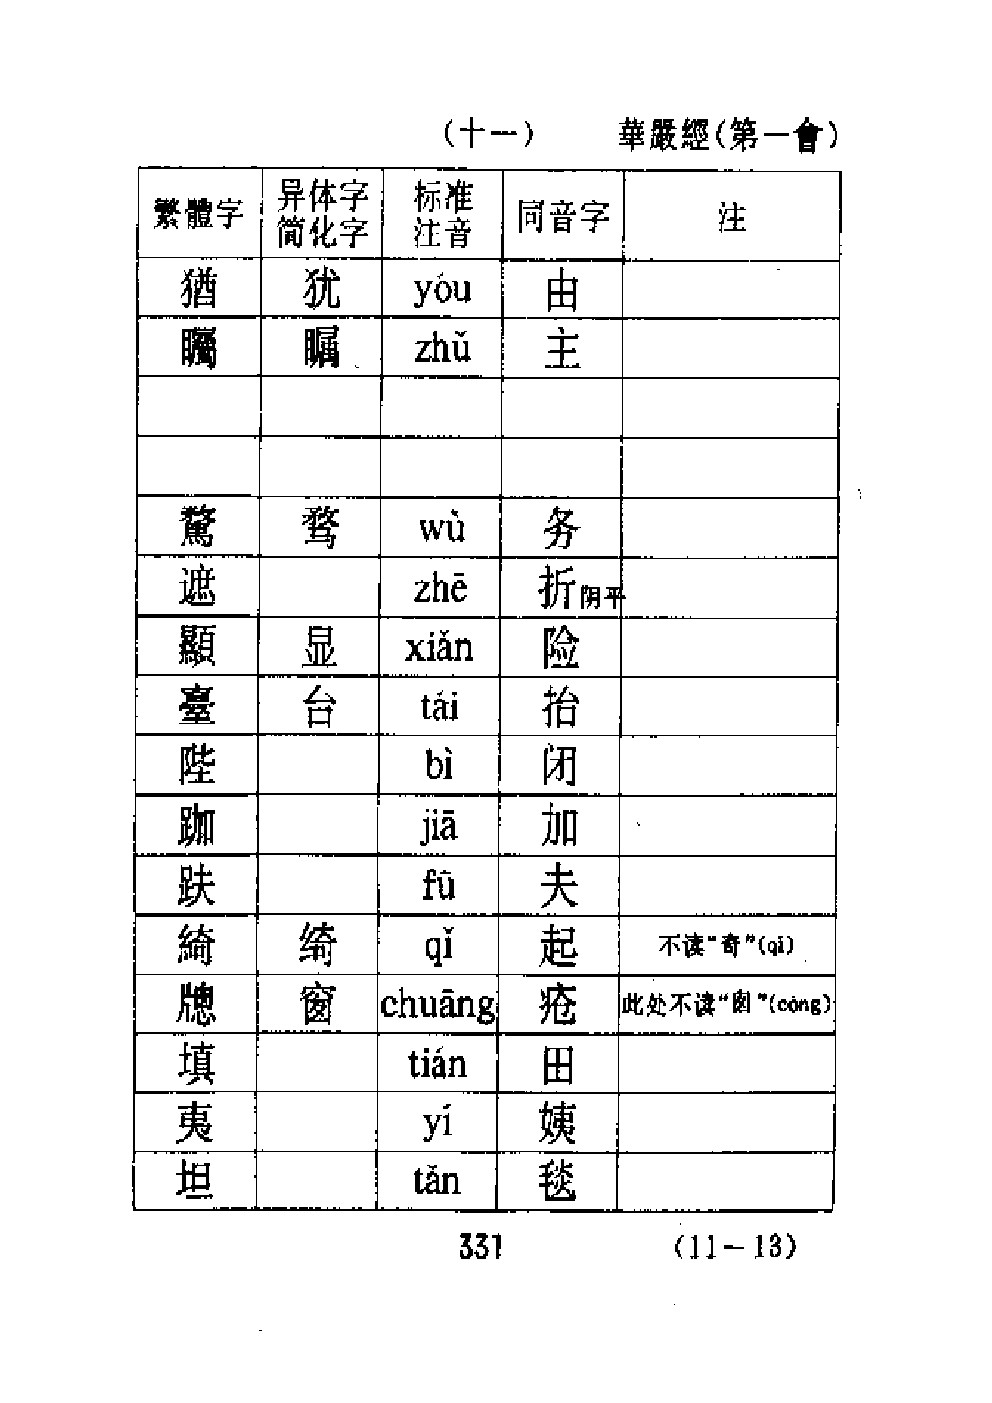 (十一) 華嚴經(第一會)
繁體字 异体字简化字 标准注音 同音字 注
猶 犹 yóu 由
矚 瞩 zhǔ 主
騖 骛 wù 务
遮 zhē 折阴平
顯 显 xiǎn 险
臺 台 tái 抬
陛 bì 闭
跏 jiā 加
趺 fū 夫
綺 绮 qǐ 起 不读“奇”(qí)
牕 窗 chuāng 疮 此处不读“囱”(cōng)
填 tián 田
夷 yí 姨
坦 tǎn 毯
331 (11-13)